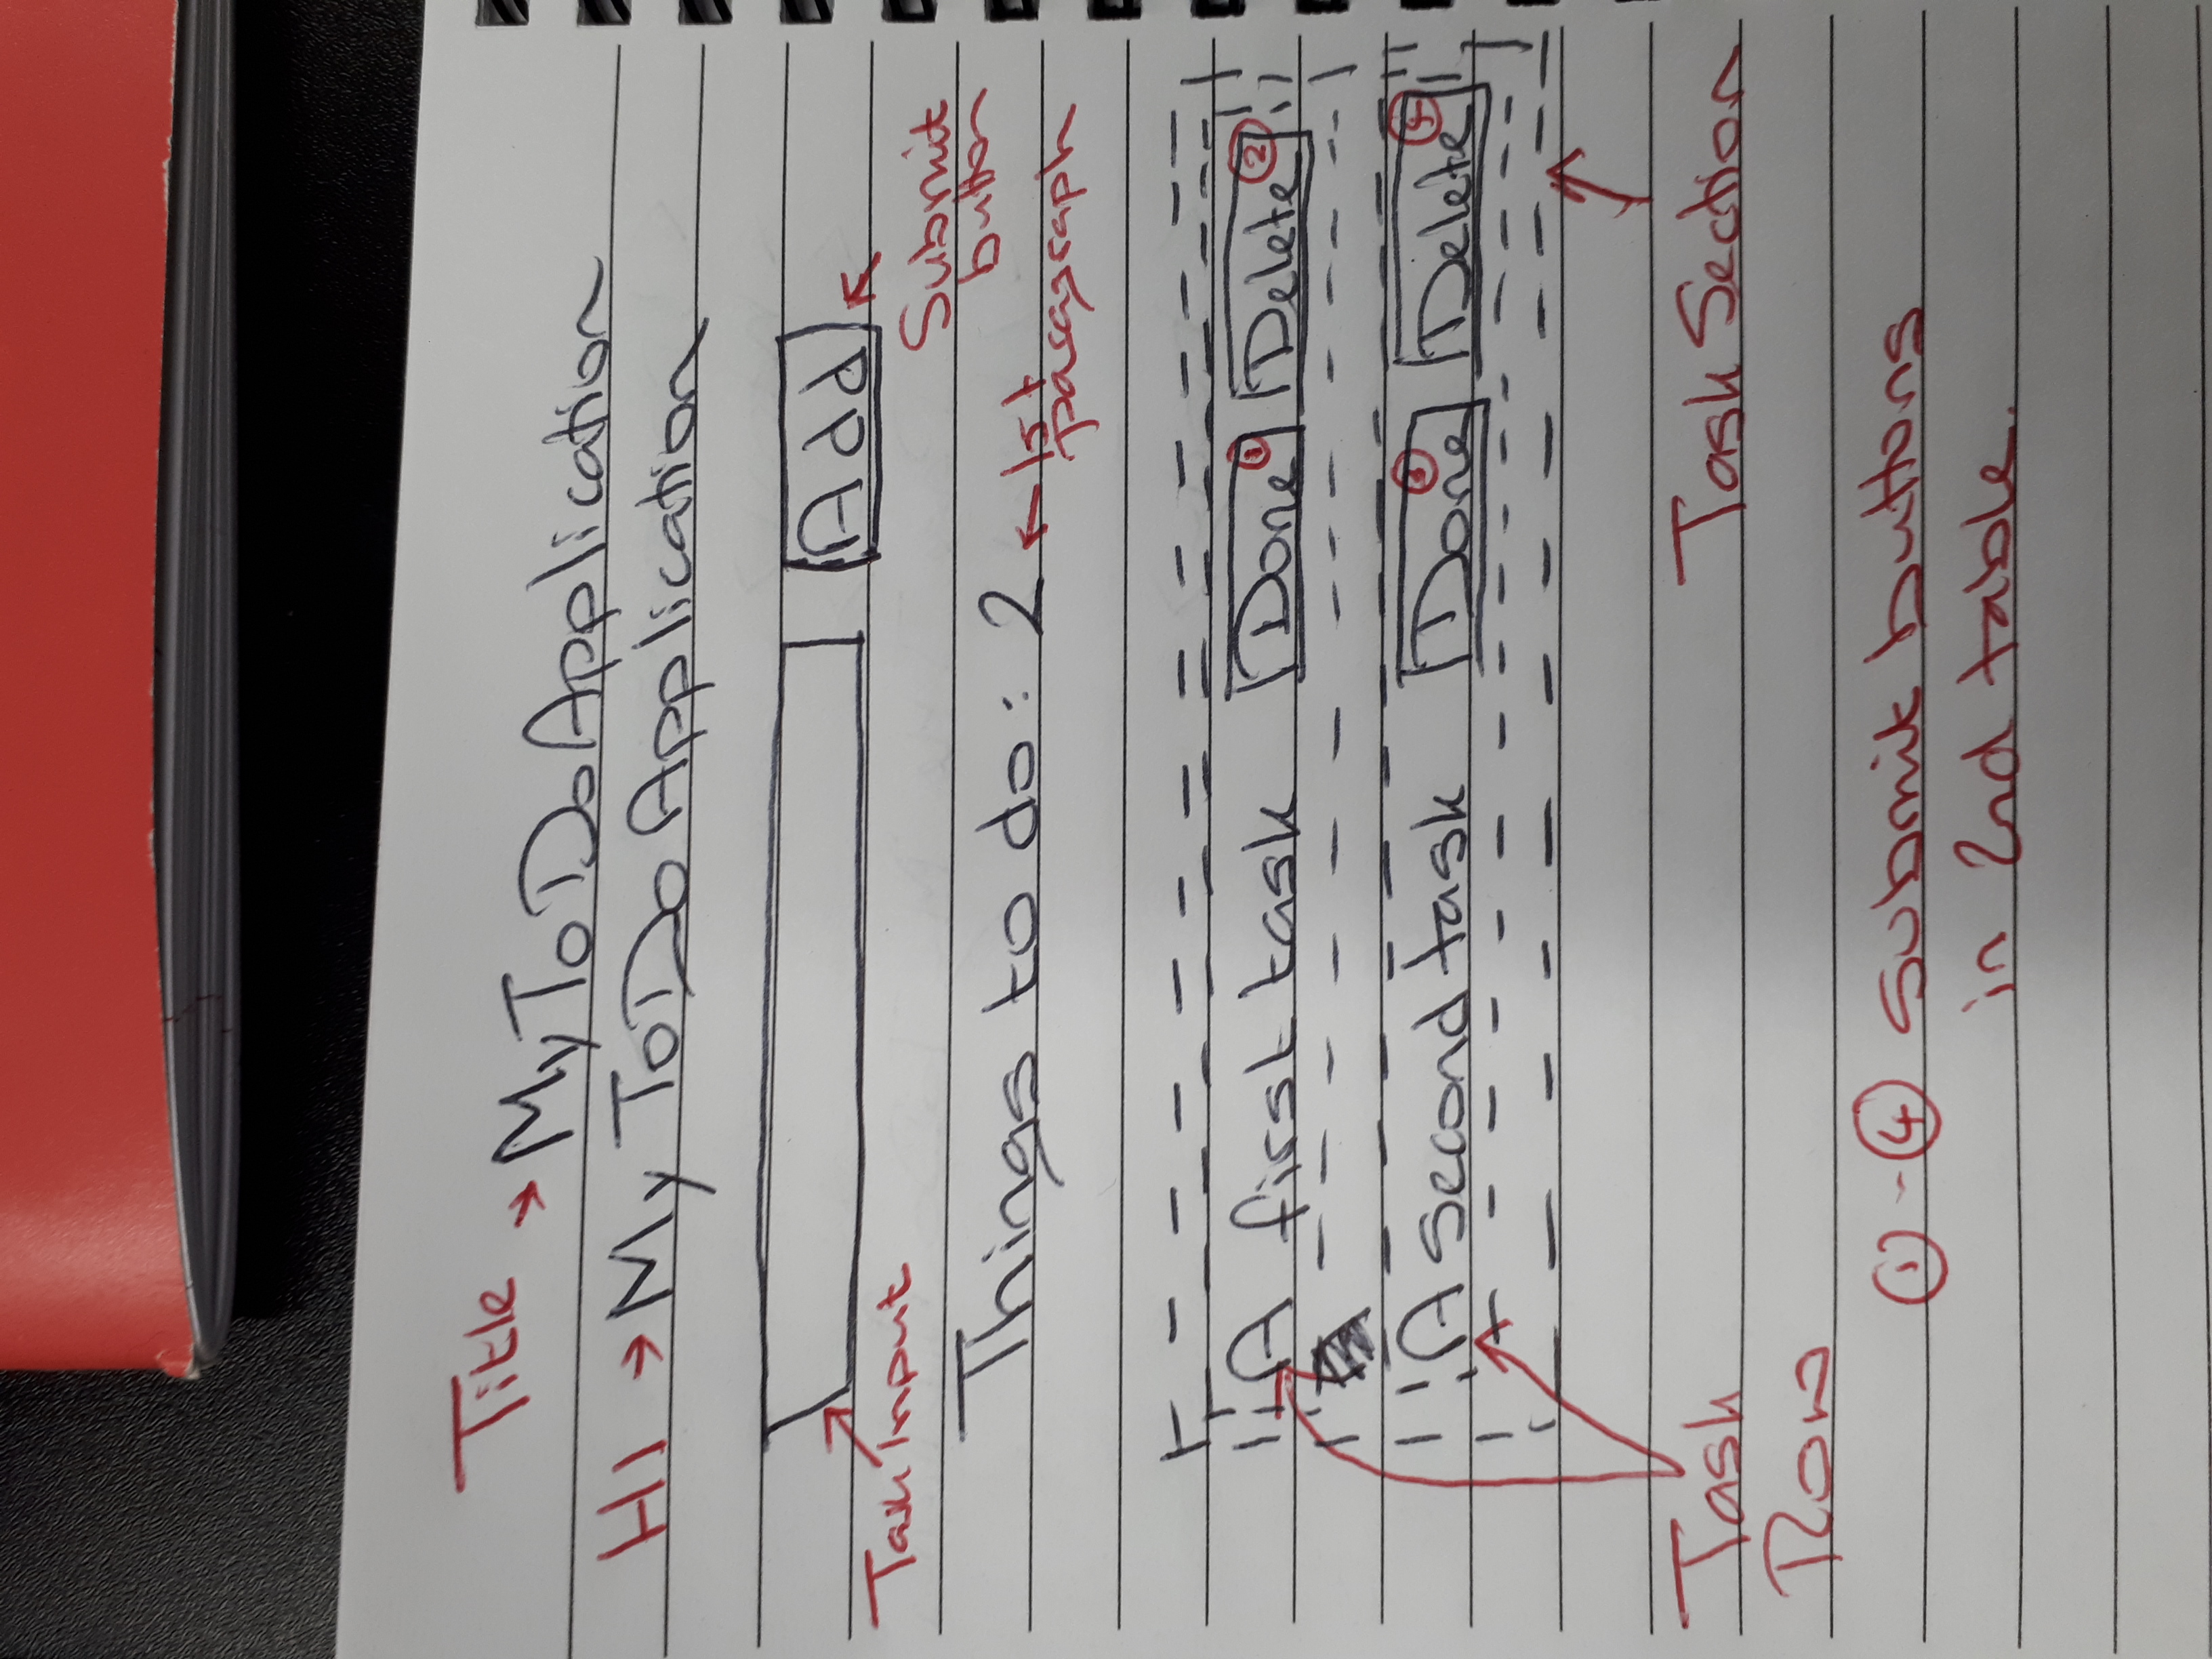 Title → My To Do Application
H1 → My To Do Application
Add
Task Input
Submit
button
Things to do: 2 ← 1st
paragraph
A first task Done ① Delete ②
A second task Done ③ Delete ④
Task Section
Task
Row
① - ④ submit buttons
in 2nd table.